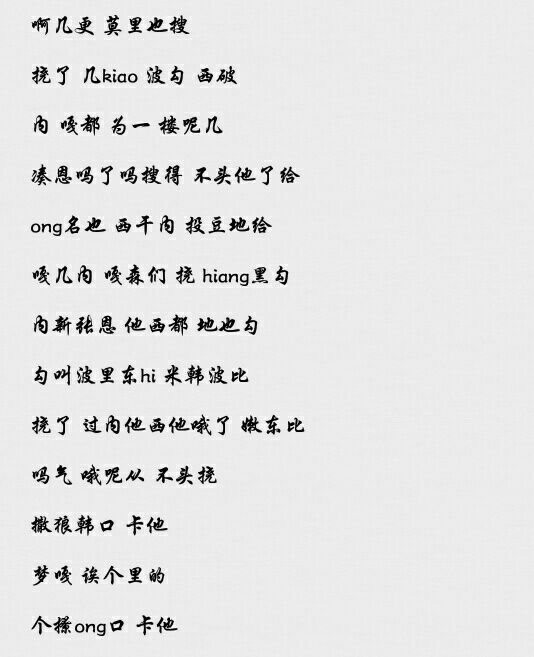 啊几更 莫里也搜
挠了 几kiao 波勾 西破
内 嘎都 为一 楼呢几
凑恩吗了吗搜得 不头他了给
ong名也 西干内 投豆地给
嘎几内 嘎森们 挠 hiang黑勾
内新张恩 他西都 地也勾
勾叫波里东hi 米韩波比
挠了 过内他西他哦了 嫩东比
吗气 哦呢从 不头挠
撒狼韩口 卡他
梦嘎 诶个里的
个搽ong口 卡他